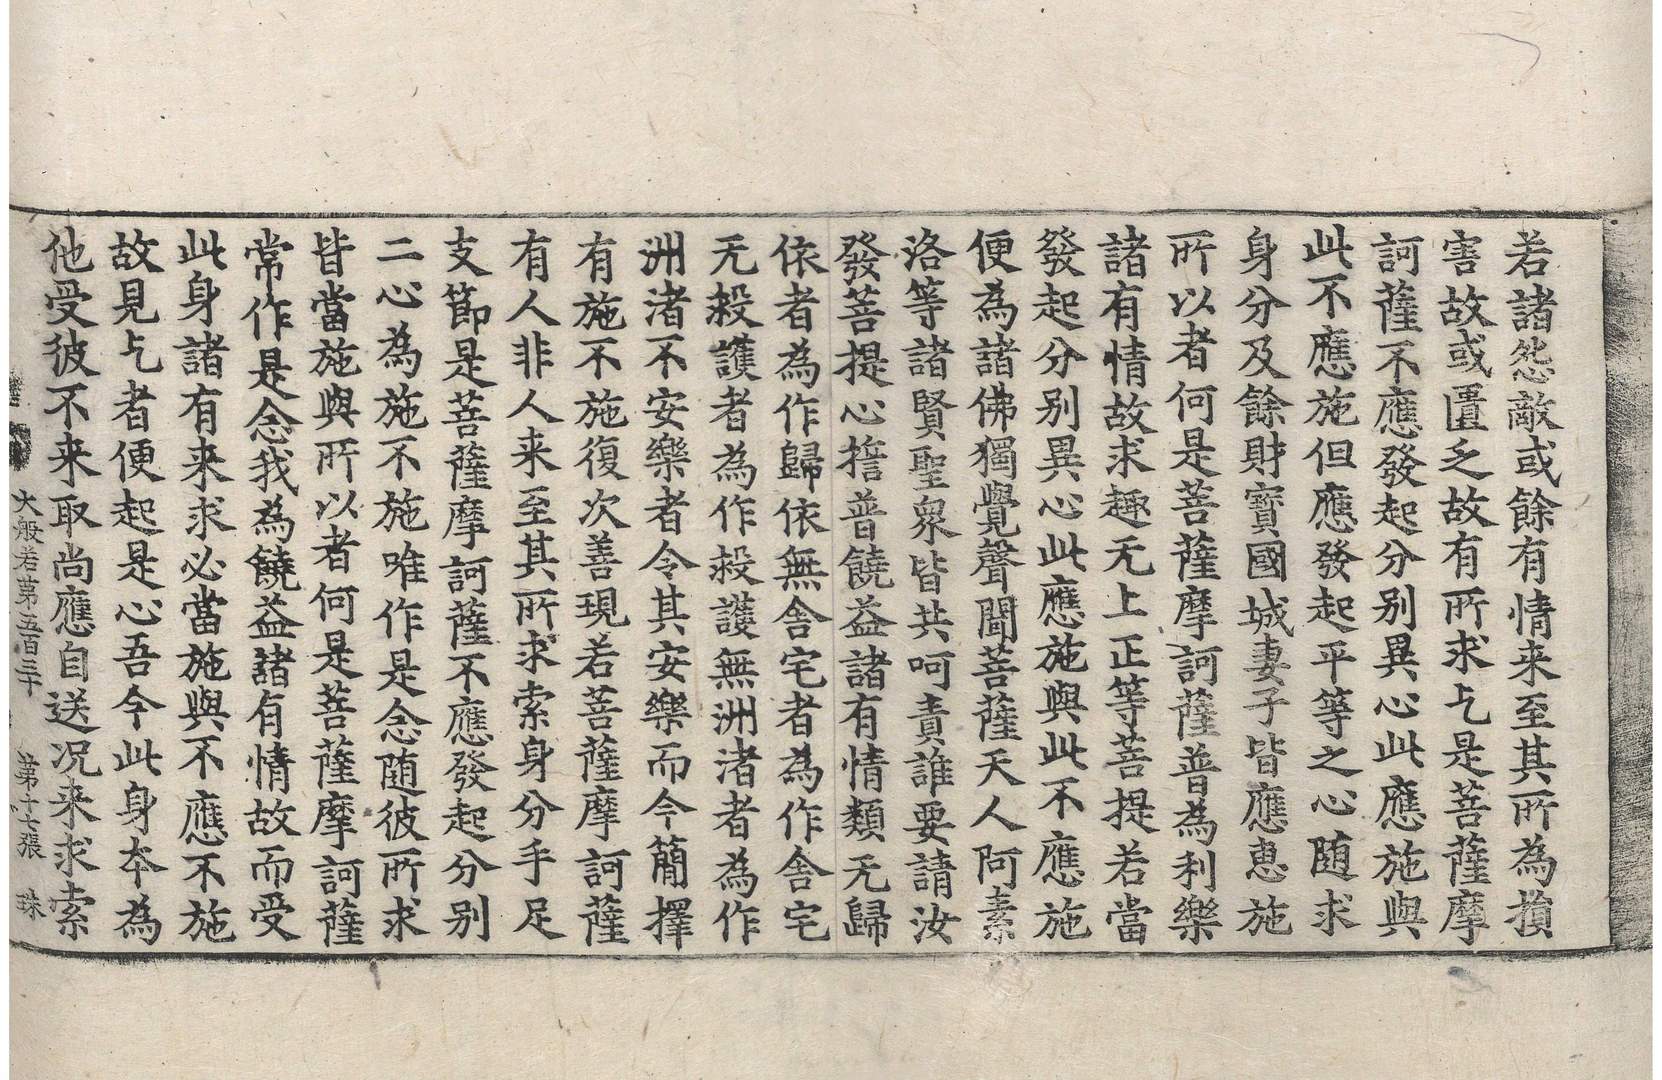 若諸怨敵或餘有情来至其所為損
害故或匱乏故有所求乞是菩薩摩
訶薩不應發起分別異心此應施與
此不應施但應發起平等之心随求
身分及餘財寶國城妻子皆應惠施
所以者何是菩薩摩訶薩普為利樂
諸有情故求趣无上正等菩提若當
發起分別異心此應施與此不應施
便為諸佛獨覺聲聞菩薩天人阿素
洛等諸賢聖衆皆共呵責誰要請汝
發菩提心擔普饒益諸有情類无歸
依者為作歸依無舎宅者為作舎宅
无救護者為作救護無洲渚者為作
洲渚不安樂者令其安樂而今簡擇
有施不施復次善現若菩薩摩訶薩
有人非人来至其所求索身分手足
支節是菩薩摩訶薩不應發起分別
二心為施不施唯作是念随彼所求
皆當施與所以者何是菩薩摩訶薩
常作是念我為饒益諸有情故而受
此身諸有来求必當施與不應不施
故見乞者便起是心吾今此身夲為
他受彼不来取尚應自送况来求索
大般若第五百三十 第十七張 珠